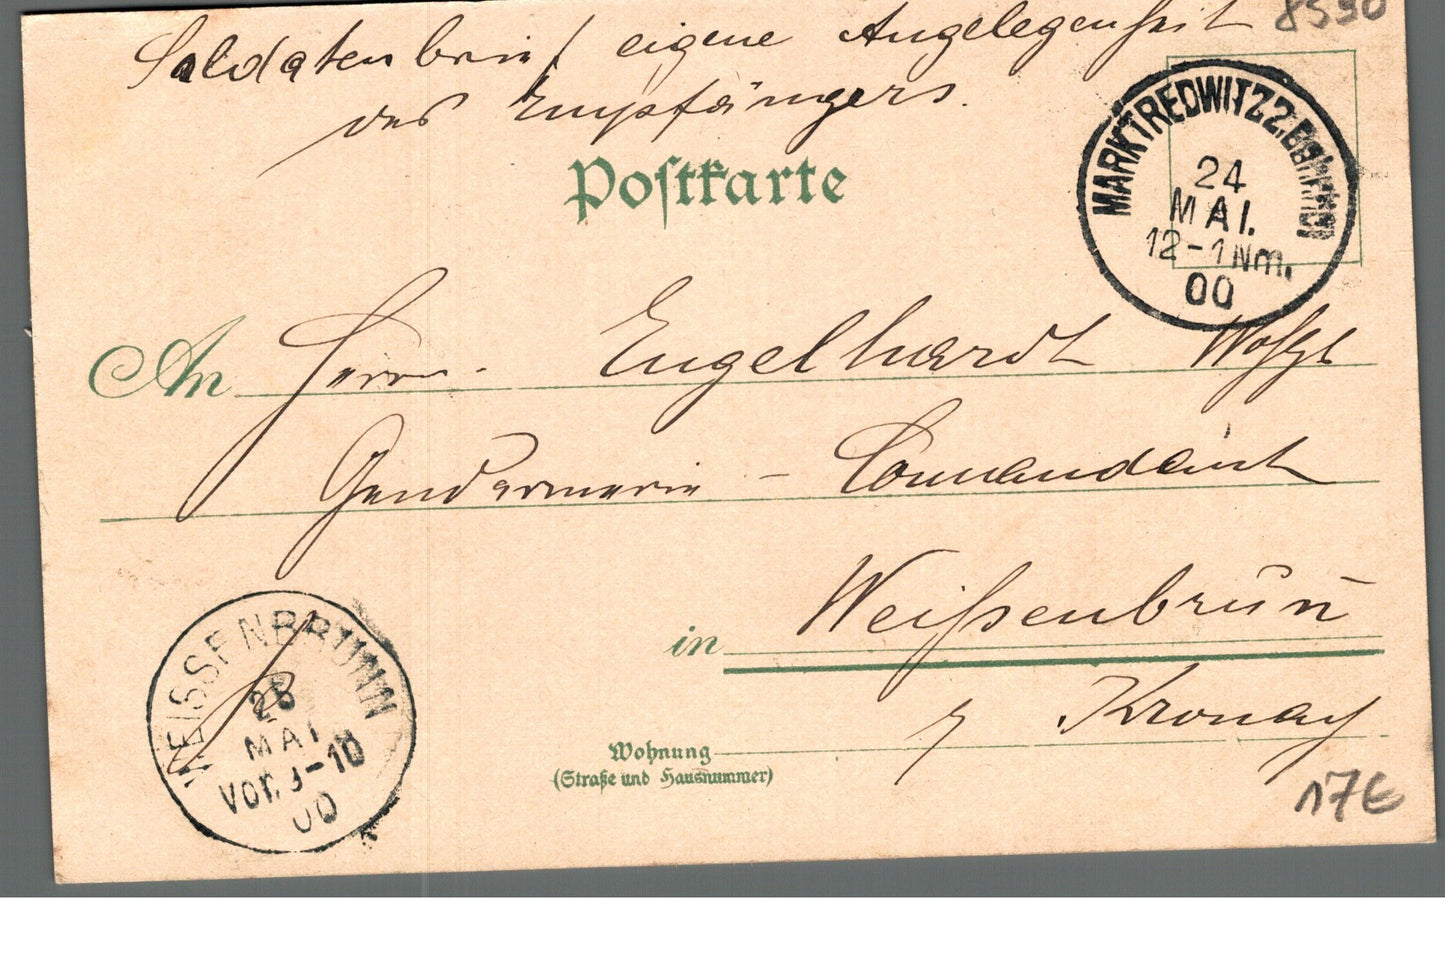 8590
Soldatenbrief eigene Angelegenheit
des Empfängers.
Postkarte
MARKTREDWITZ 2. Bahnhof
24
MAI.
12-1Nm.
00
An Herrn. Engelhardt
Gendarmerie - Commandant
in Weißenbrun̄
Kronach
WEISSENBRUNN
25
MAI
Vor. 10
00
Wohnung
(Straße und Hausnummer)
17€